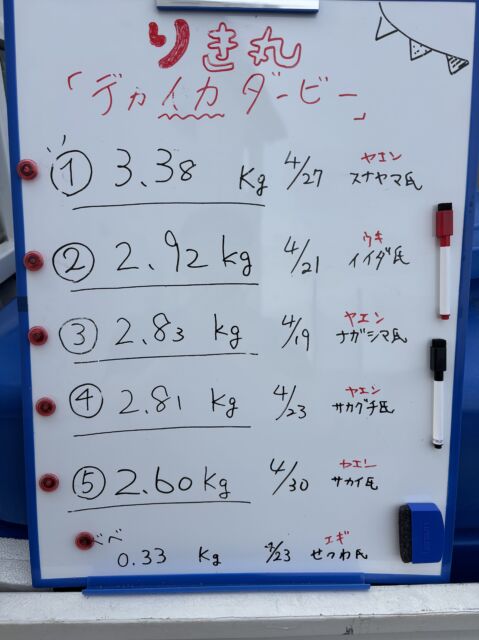 りき丸
「デカイカダービー」
① 3.38 Kg 4/27 ヤエン スナヤマ氏
② 2.92 kg 4/21 ウキ イイダ氏
③ 2.83 kg 4/19 ヤエン ナガシマ氏
④ 2.81 kg 4/23 ヤエン サカグチ氏
⑤ 2.60 kg 4/30 ヤエン サカイ氏
べべ 0.33 Kg 4/23 エギ せつわ氏